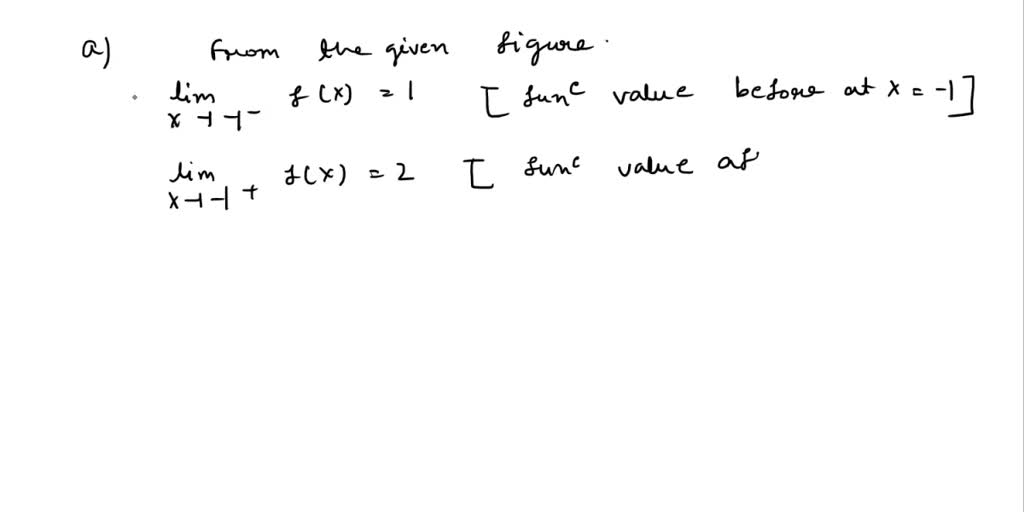 a) From the given figure.
lim f(x) = 1 [ func value before at x = -1 ]
x→-1-
lim f(x) = 2 [ func value af
x→-1+